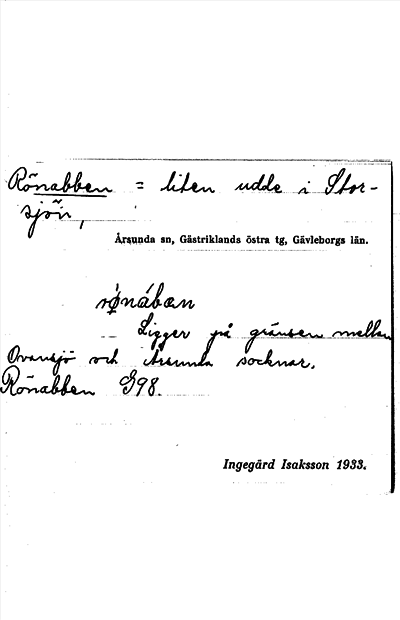 Rönabben = liten udde i Stor-
sjön,
Årsunda sn, Gästriklands östra tg, Gävleborgs län.
rö̀nában
Ligger på gränsen mellan
Ovansjö och Årsunda socknar.
Rönabben G98.
Ingegärd Isaksson 1933.